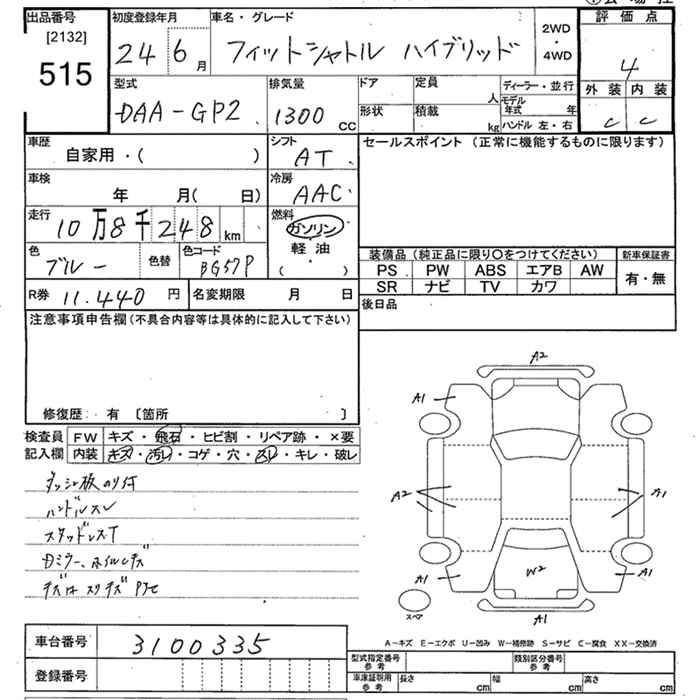 出品番号
[2132]
515
初度登録年月
24 6 月
車名・グレード
フィットシャトル ハイブリッド
2WD
・
4WD
評価点
4
外装 内装
C C
型式
DAA-GP2
排気量
1300 CC
ドア
形状
定員
人
積載
kg
ディーラー・並行
モデル年式 年
ハンドル 左・右
車歴
自家用・( )
シフト
AT
車検
年 月( 日)
冷房
AAC
走行
10万8千248 km
燃料
ガソリン
軽油
( ・ )
色
ブルー
色替
色コード
BG57P
R券 11.440 円
名変期限 月 日
セールスポイント (正常に機能するものに限ります)
装備品(純正品に限り〇をつけてください)
PS PW ABS エアB AW
SR ナビ TV カワ
新車保証書
有・無
後日品
注意事項申告欄(不具合内容等は具体的に記入して下さい)
修復歴: 有 〔箇所 〕
検査員
記入欄
FW キズ・飛石・ヒビ割・リペア跡・×要
内装 キズ・汚レ・コゲ・穴・スレ・キレ・破レ
ダッシュ板のり付
ハンドルスレ
スタッドレスT
Dミラー、ホイルキズ
A2
A1
A2
A1
A1
W2
A1
A1
スペア
A-キズ E-エクボ U-凹み W-補修跡 S-サビ C-腐食 XX-交換済
車台番号 3100335
登録番号
型式指定番号
参考
類別区分番号
参考
車庫証明用
参考
長さ cm
幅 cm
高さ cm